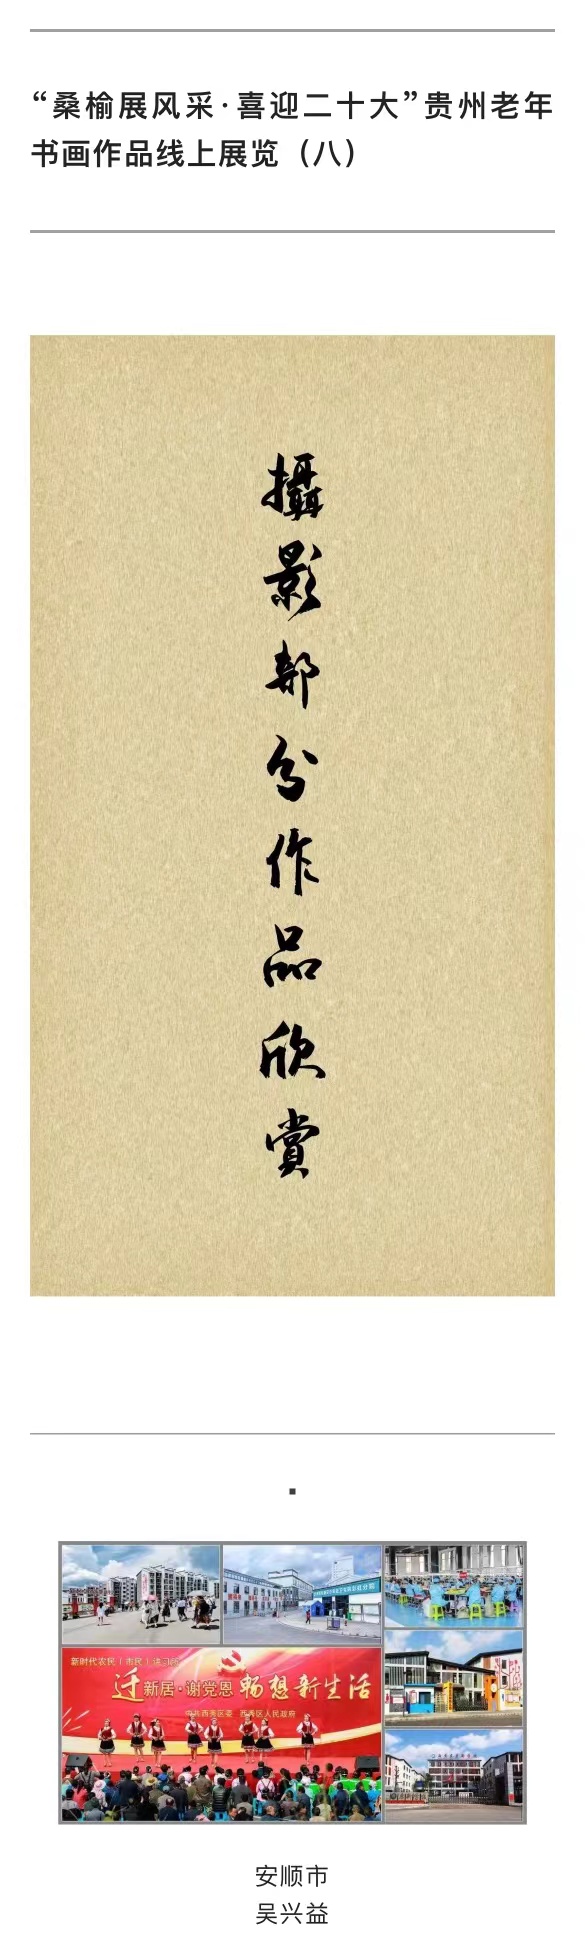 “桑榆展风采·喜迎二十大”贵州老年
书画作品线上展览（八）
攝影部分作品欣赏
新时代农民（市民）讲习所
迁新居·谢党恩 畅想新生活
中共西秀区委 西秀区人民政府
安顺市
吴兴益